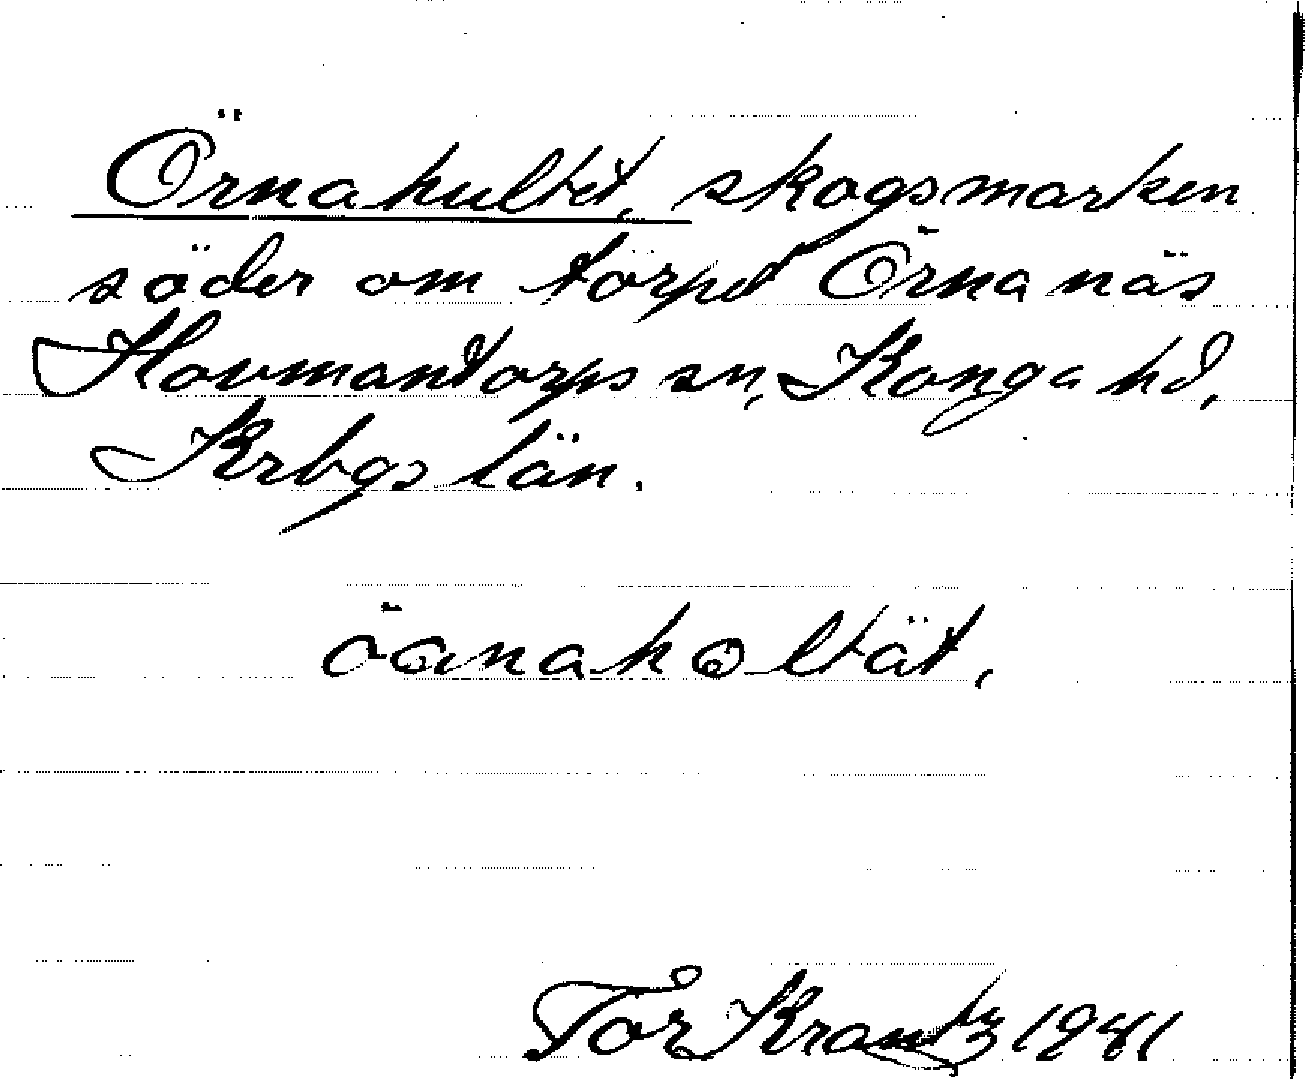 Örnahultet, skogsmarken
söder om torpet Örnanäs
Hovmantorps sn, Konga hd,
Krbgs län.
öanahåltät,
Tor Krantz 1941